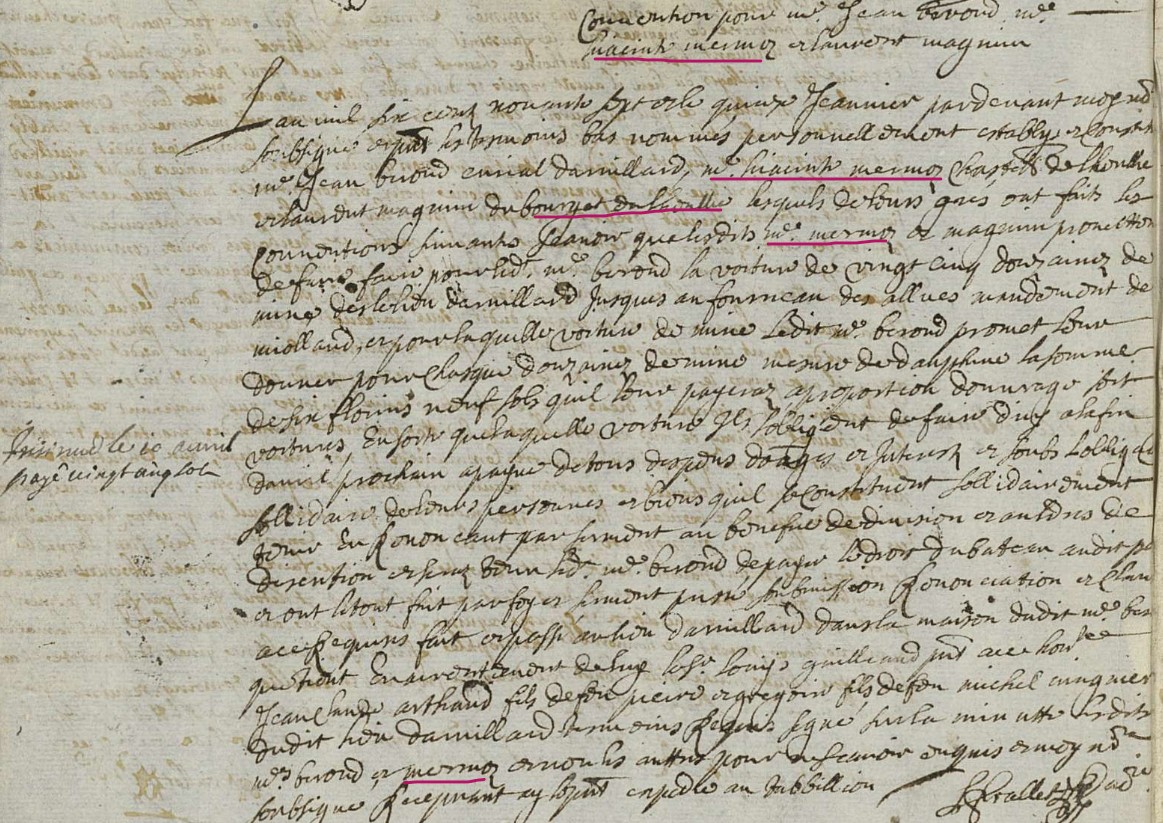 Convention pour me. Jean berond, me.
hiacinte mermoz et laurent magnin
L'an mil six cent nonante sept et le quinze Jeanvier par devant moy nore
soubsigné et pnt les temoins bas nommés personnellement establys et constit
me. Jean berond curial darvillard, me. hiacinte mermoz Chastell de lheulle
et laurent magnin du bourget en lheulle lesquels de leurs grés ont faits les
conventions suivantes scavoir que lesdits me. mermoz et magnin promettent
de faire pour led. me. berond la voiture de vingt cinq douzaines de
mine des le lieu darvillard Jusques au fourneau des allues mandement de
miolland, et pour laquelle voiture de mine ledit me. berond promet leur
donner pour chasque douzaines de mine mesure de dauphine la somme
de six florins neuf sols quil leur payeraz a proportion douvrage soit
voitures, En sorte que laquelle voiture Ils sobligent de faire dicy a la fin
davril prochain a payne de tous despens domages et Interest et soubs lobligaon
sollidaire de leurs personnes et biens quil se constituent sollidairement
tenir En Renonceant par serment au benefice de division et
discution et seraz tenu led. me. berond de payer le droit du bateau audit
et ont le tout fait par foy et serment presté soubmission Renonciation et clau
a ce Requises fait et passé au lieu darvillard dans la maison dudit me. be
que tient En de luy le sr. louys guilliand pnt a ce hon
Jean Claude arthaud fils de feu pierre et gregoire fils de feu michel
dudit lieu darvillard temoins Requis signé sur la minutte lesdits
mes berond et mermoz et non les autres pour ne scavoir enquis et moy nore
soubsigné Recepvant ay le pnt expedie au tabbellion
le 10 avril
payé vingt cinq sols